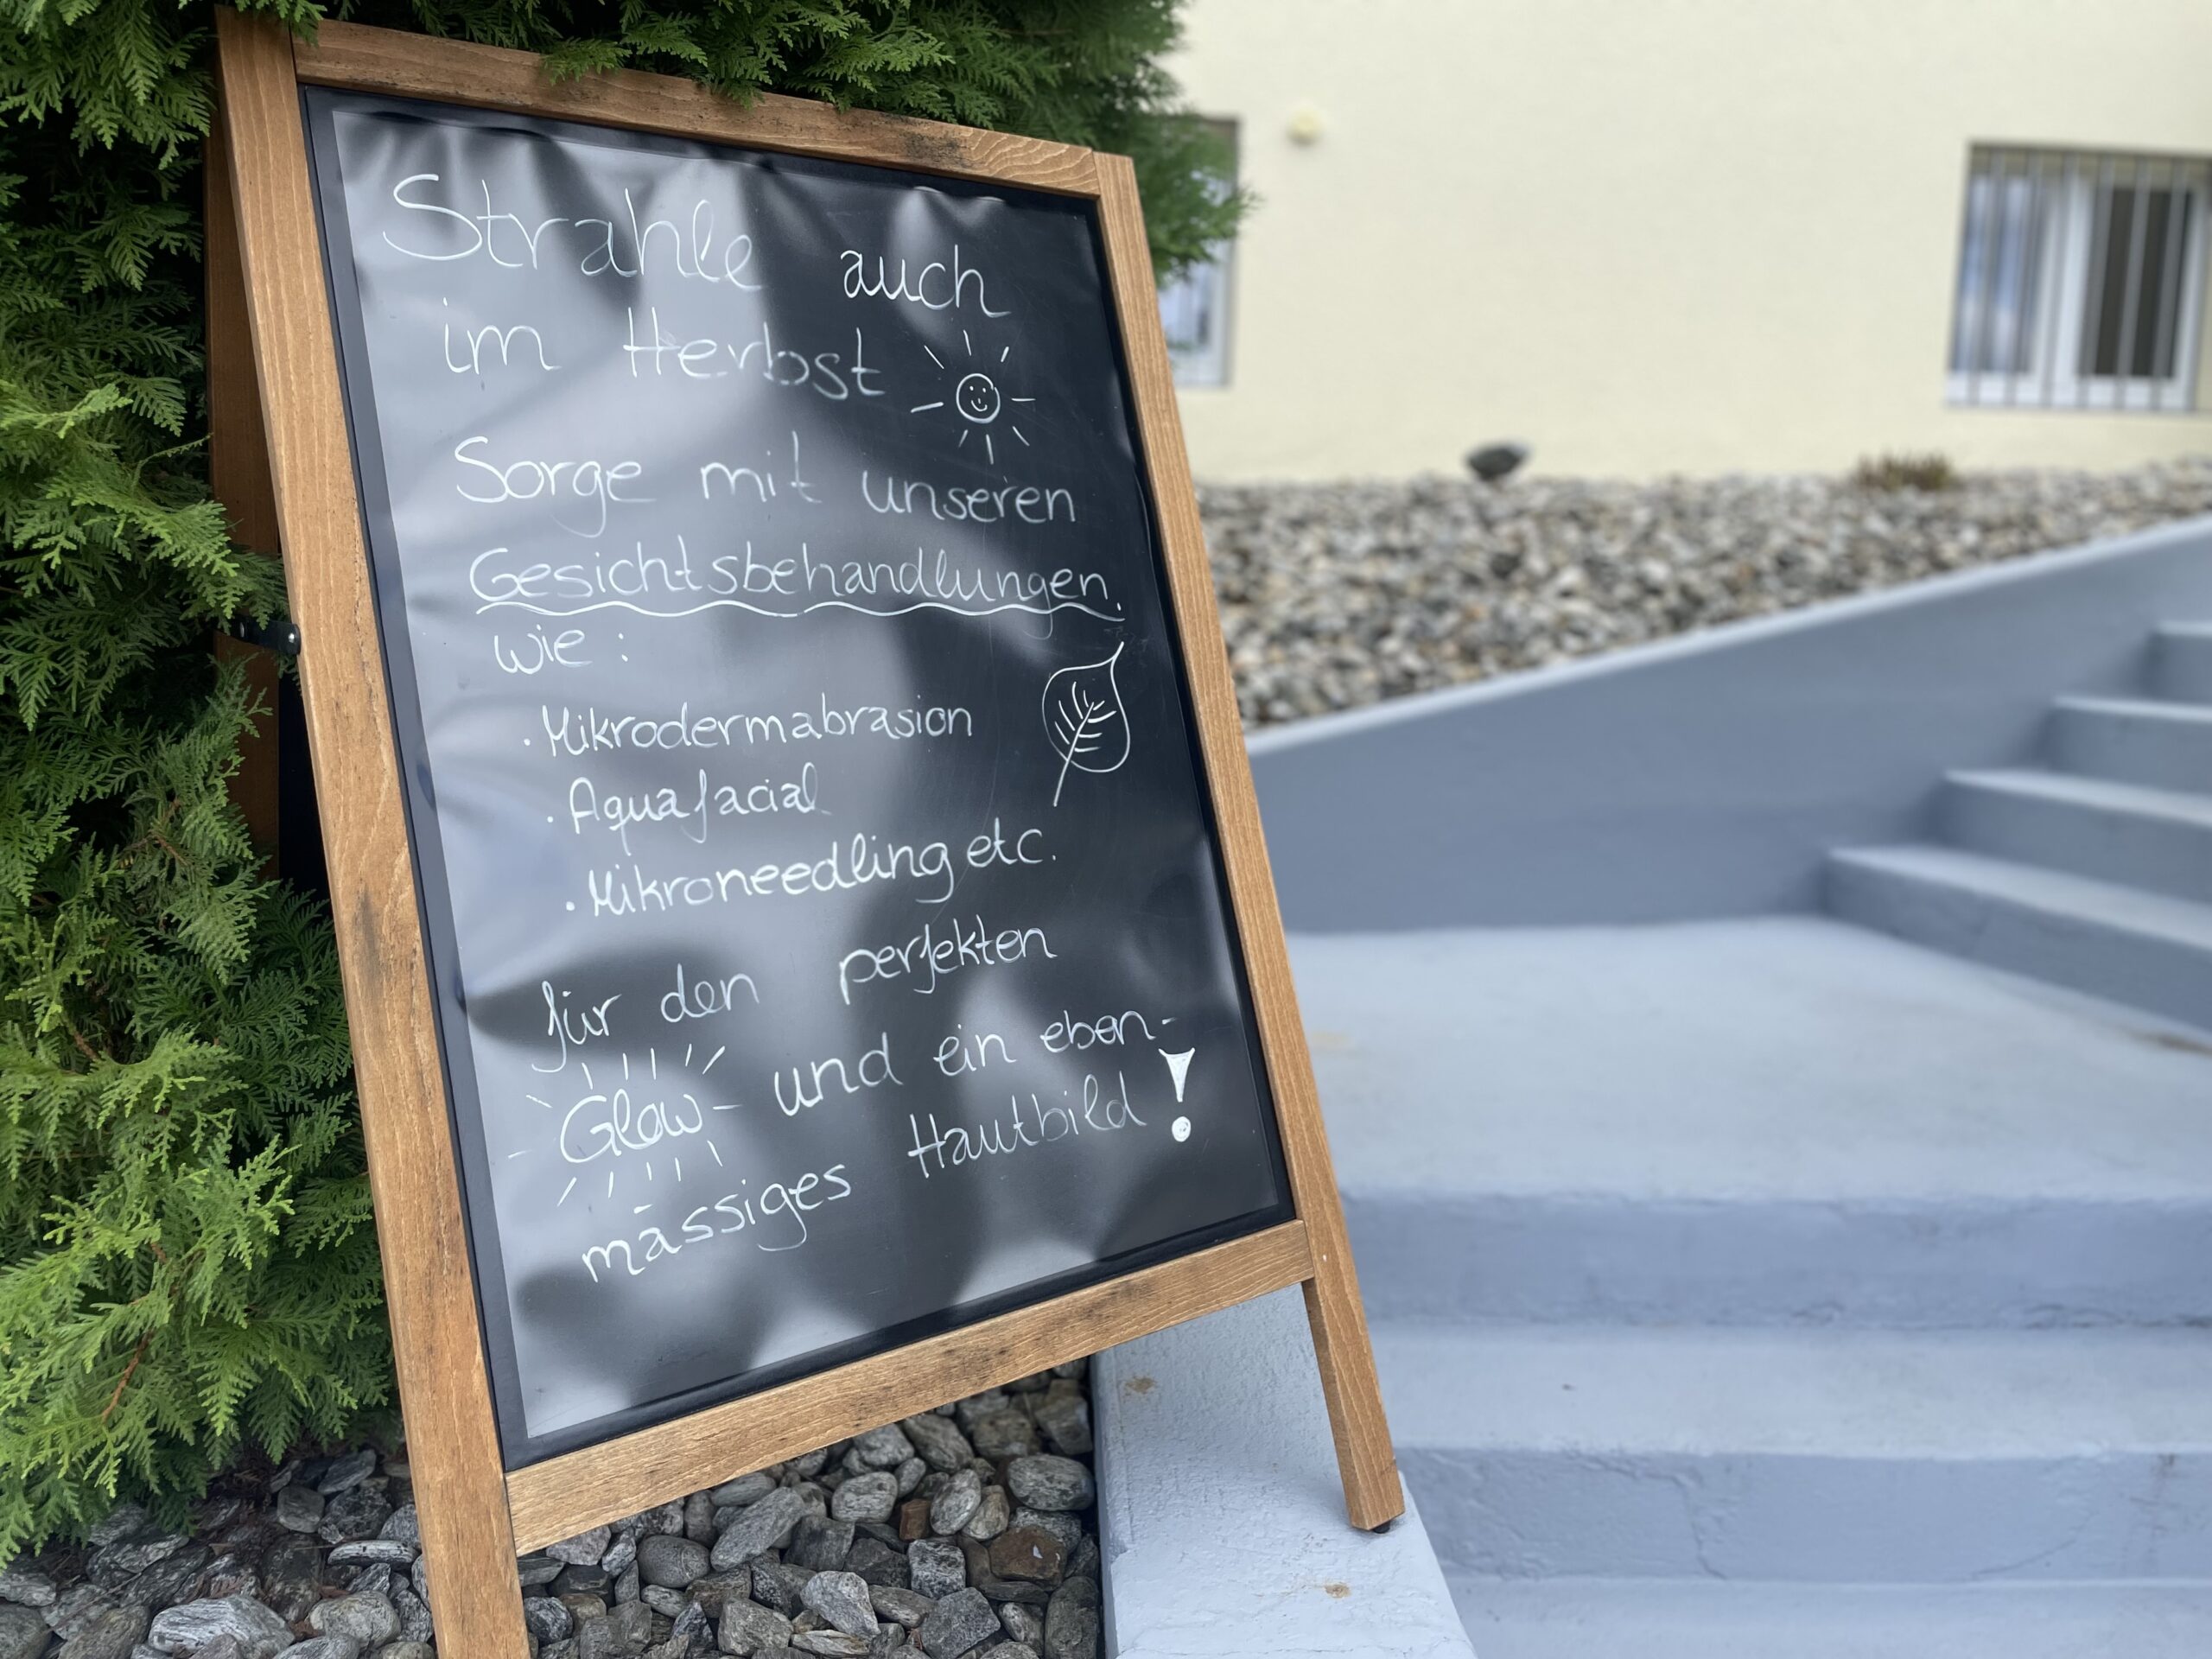 Strahle auch
im Herbst
Sorge mit unseren
Gesichtsbehandlungen.
wie :
· Mikrodermabrasion
· Aquafacial
· Mikroneedling etc.
für den perfekten
Glow und ein eben-
mässiges Hautbild !